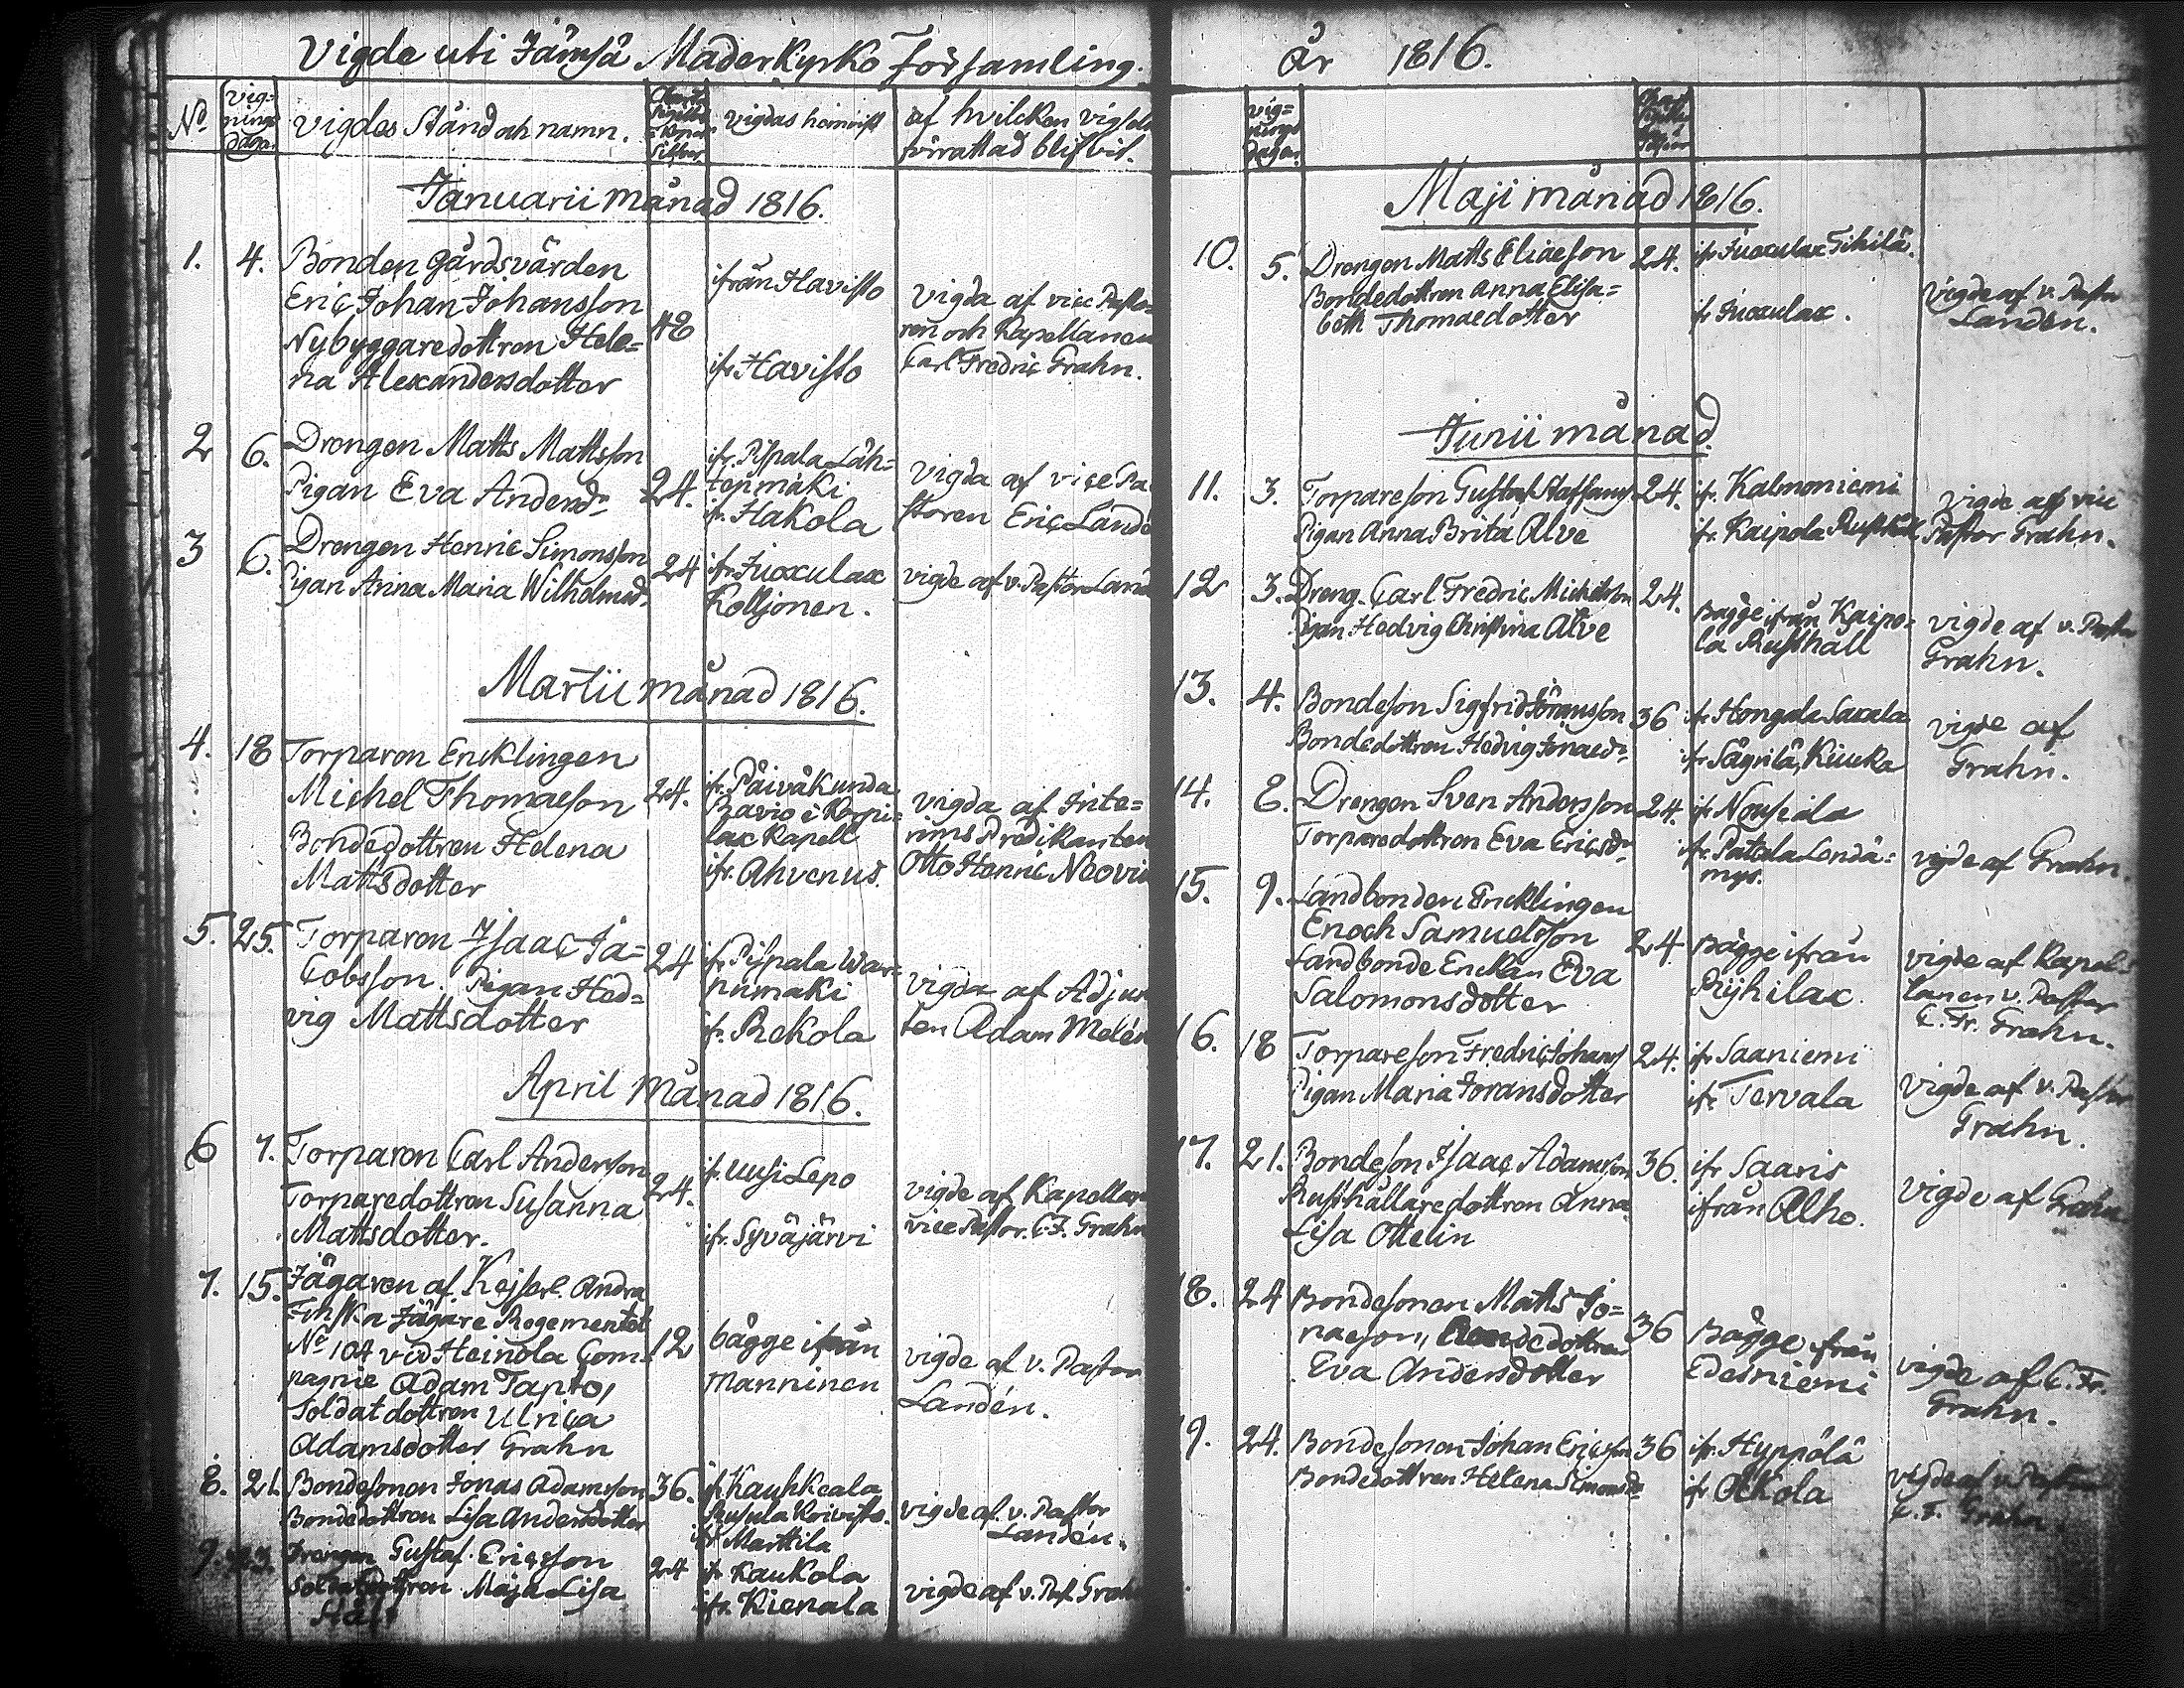 Vigde uti Jämsä Moderkyrko Församling.
År 1816.
No.
Vig=
nings
dagen.
Vigdes Stånd och namn.
Vigdas hemvist
af hvilcken vigseln
förrättad blifvit.
Januarii månad 1816.
1. 4. Bonden gårdsvärden
Eric Johan Johansson
Nybyggaredottren Hele=
na Alexandersdotter
48
ifrån Havisto
ifr. Havisto
Vigda af vice Pasto=
ren och Kapellanen
Carl Fredric Grahn.
2 6. Drengen Matts Mattsson
Pigan Eva Andersdr
24.
ifr. Pispala Läh=
tenmäki
ifr. Hakola
Vigda af vice Pa
storen Eric Landé
3 6. Drengen Henric Simonsson
Pigan Anna Maria Wilhelmsd.
24
ifr. Juoxulax
Kolljonen.
vigde af v. Pastor Land
Martii månad 1816.
4. 18 Torparen Encklingen
Michel Thomaeson
Bondedottren Helena
Mattsdotter
24.
ifr. Päiväkunda
Ravio i Korpi=
lax Kapell
ifr. Ahvenus.
Vigda af Inte=
rims Predikanten
Otto Henric Neoviu
5. 25. Torparen Isaac Ja=
cobsson. Pigan Hed=
vig Mattsdotter
24
ifr. Pispala War=
numäki
ifr. Rekola
Vigda af Adjun
ten Adam Melén
April Månad 1816.
6 7. Torparen Carl Andersson
Torparedottren Susanna
Mattsdotter.
24.
if. Uusi Lepo
ifr. Syväjärvi
vigde af Kapellan
vice Pastor. C. F. Grahn
7. 15. Jägaren af Kejserl. Andra
Finska Jägare Regementet
No 104 vid Heinola Com=
pagnie Adam Tapto,
Soldatdottren Ulrica
Adamsdotter Grahn
12
bägge ifrån
Manninen
vigde af v. Pastor
Landén.
8. 21. Bondesonen Jonas Adamsson
Bondedottren Lisa Andersdotter
36.
if. Kauhkeala
Rusula Koivisto.
ifr Marttila
vigde af v. Pastor
Landén.
9. 23. Drengen Gustaf Ericsson
Soldatdottren Maja Lisa
24
ifr. Kaukola
ifr. Kienala
vigde af v. Past. Grahn
Vig=
nings
dagen.
Maji månad 1816.
10. 5. Drengen Matts Eliaeson
Bondedottren Anna Elisa=
beth Thomaedotter
24.
ifr Juoxulax Tihilä.
ifr Juoxulax.
Vigde af v. Pastor
Landén.
Junii månad.
11. 3. Torpareson Gustaf Staffans
Pigan Anna Brita Alve
24.
ifr. Kalmoniemi
ifr. Kaipola Rusthåll
Vigde af vice
Pastor Grahn.
12 3. Dreng. Carl Fredric Michelsson
Pigan Hedvig Christina Alve
24.
Bägge ifrån Kaipo=
la Rusthåll
vigde af v. Pastor
Grahn.
13. 4. Bondeson Sigfrid Göransson
Bondedottren Hedvig Jonaedr
36
ifr Hongala Saxala
ifr Sägrilä, Kiucka
Vigde af
Grahn.
14. 8. Drengen Sven Andersson
Torparedottren Eva Ericsdr
24.
ifr Nousiala
ifr. Patala Lendä=
mys.
vigde af Grahn.
15. 9. Landbonden Encklingen
Enoch Samuelsson
Landbonde Enckan Eva
Salomonsdotter
24
Bägge ifrån
Ryhilax
Vigde af Kapel=
lanen v. Pastor
C. Fr. Grahn.
16. 18 Torpareson Fredric Johans
Pigan Maria Joransdotter
24.
ifr Saaniemi
ifr. Tervala
Vigde af v. Pastor
Grahn.
17. 21. Bondeson Isaac Adamsson
Rusthållaredottren Anna
Lisa Ottelin
36.
ifr Saaris
ifrån Alho.
Vigde af Grahn
18. 24 Bondesonen Matts Jo=
naeson, Bondedottren
Eva Andersdotter
36
Bägge från
Edesniemi
Vigde af C. Fr.
Grahn.
19. 24. Bondesonen Johan Ericsson
Bondedottren Helena Simonsdr
36
ifr. Hyppölä
ifr Alkola
Vigde af v. Pastor
C. F. Grahn.